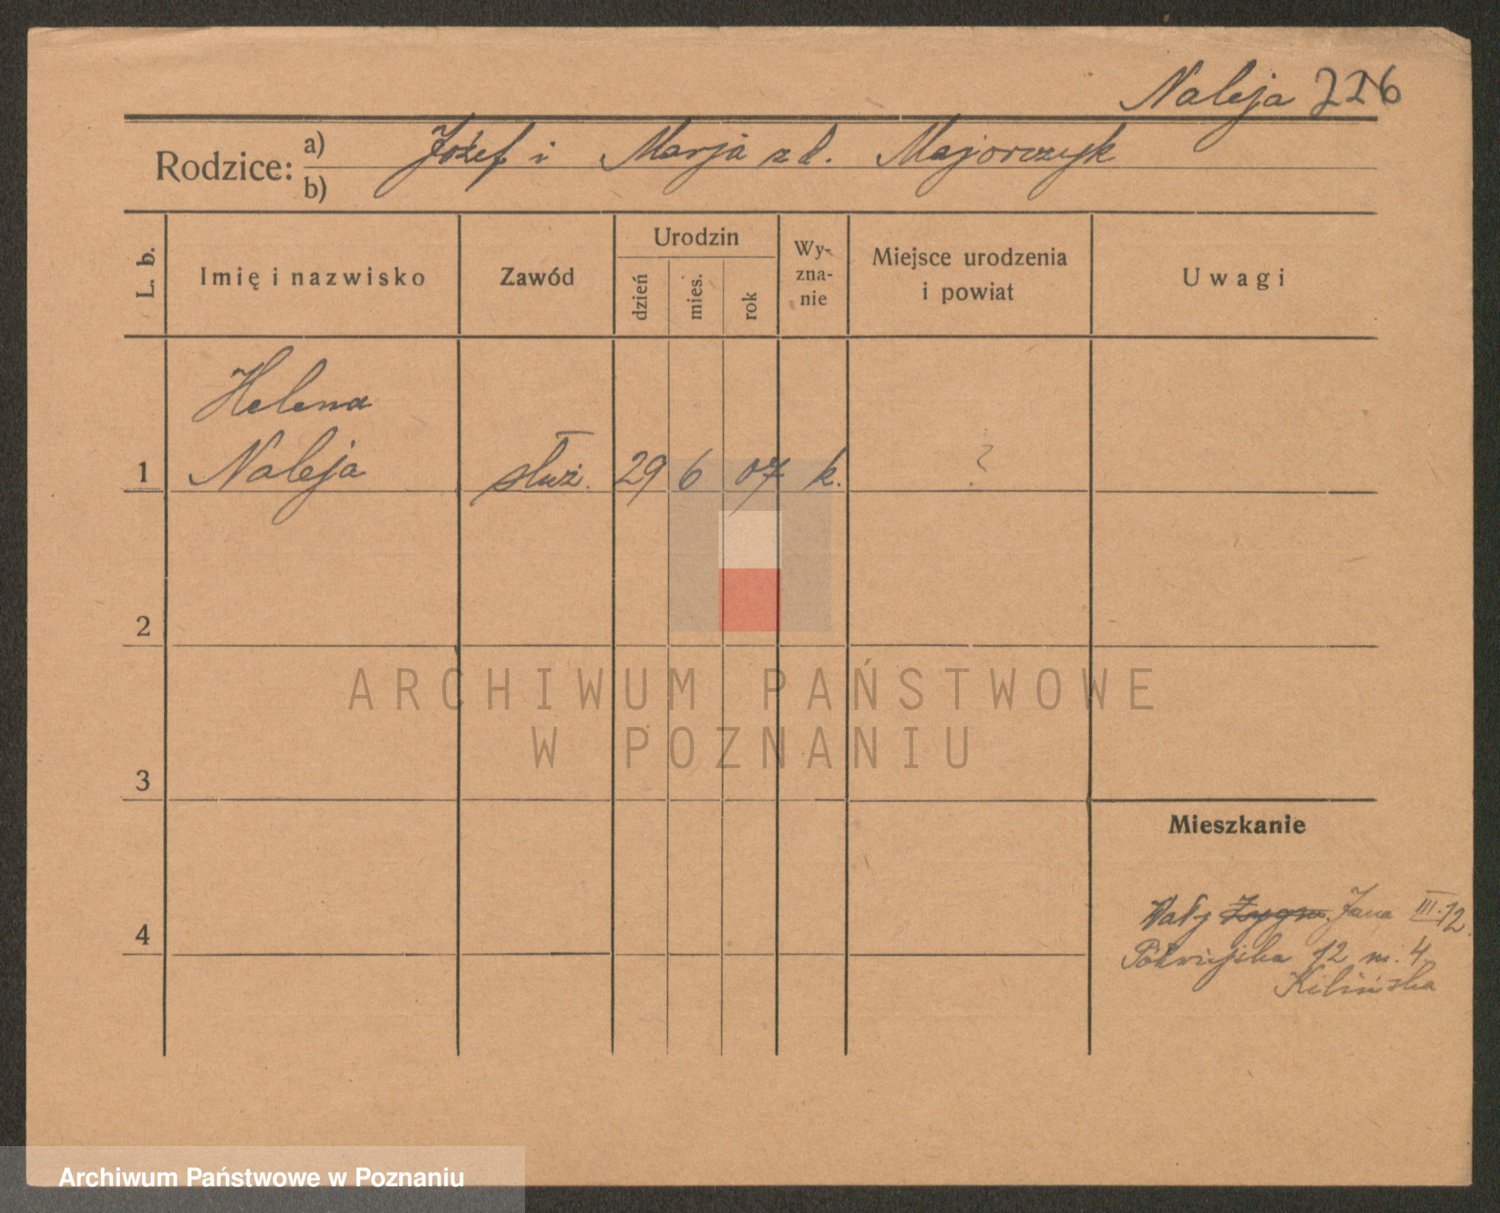 Naleja 226
Rodzice: a) Józef i Marja z d. Majorczyk
b)
L. b.
Imię i nazwisko
Zawód
Urodzin
dzień
mies.
rok
Wy-
zna-
nie
Miejsce urodzenia
i powiat
Uwagi
Helena
1 Naleja służ. 29 6 07 k. ?
2
ARCHIWUM PAŃSTWOWE
W POZNANIU
3
Mieszkanie
Wały Zygm. Jana III. 12.
4
12 m. 4
Kilińska
Archiwum Państwowe w Poznaniu